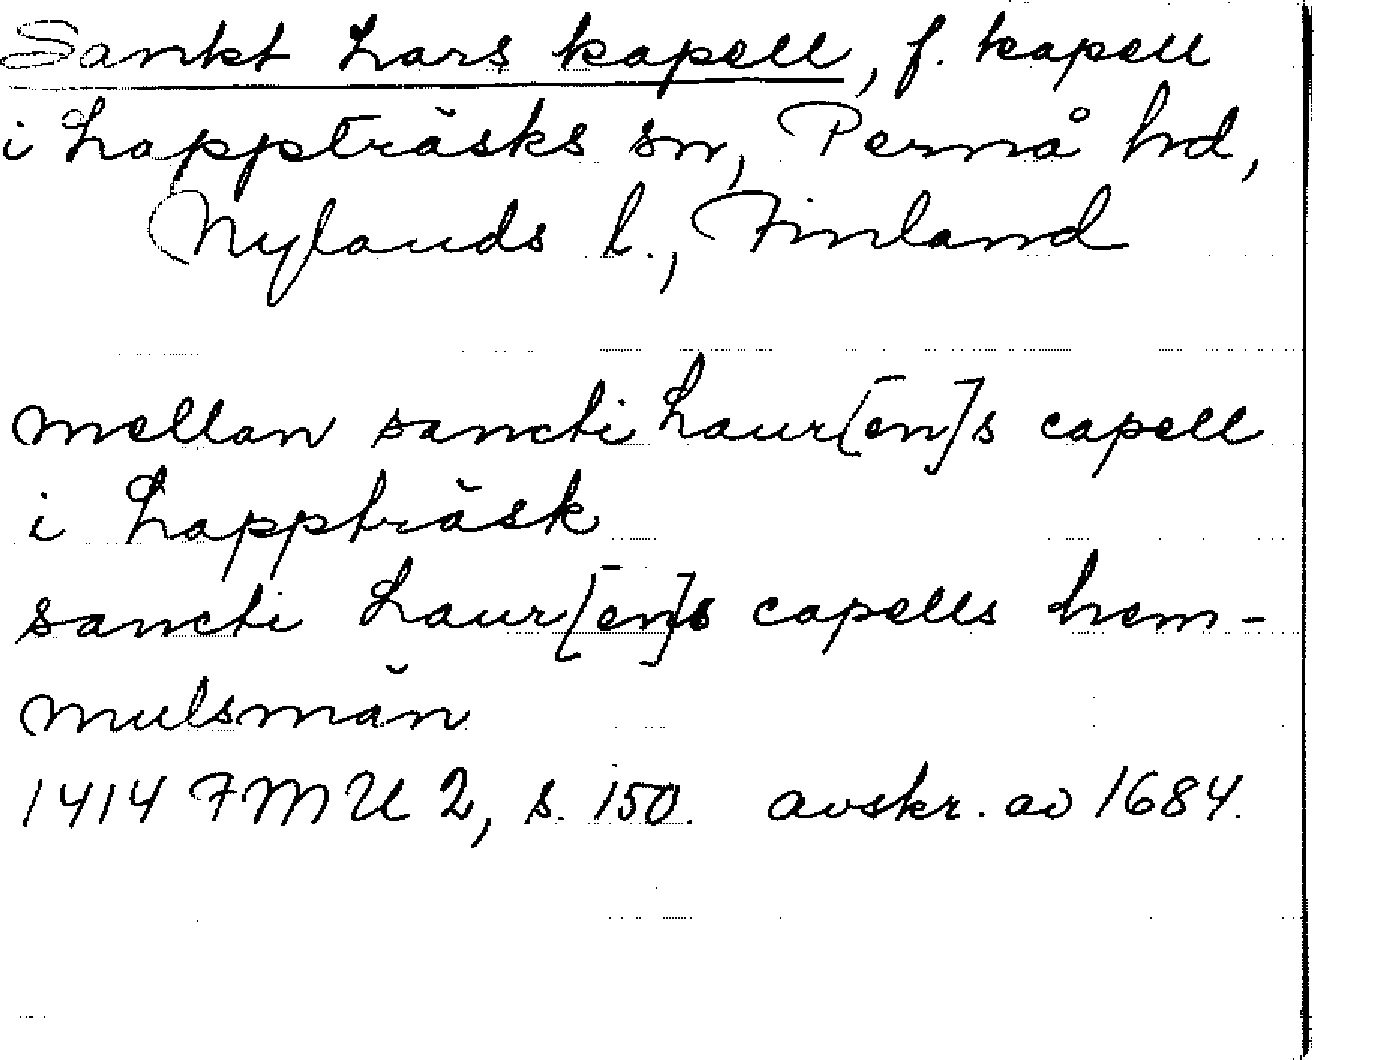 Sankt Lars kapell, f. kapell
i Lappträsks sn, Pernå hd,
Nylands l., Finland
mellan sancti Laur[en]s capell
i Lappträsk
sancti Laur[en]s capells hem-
mulsmän
1414 FMU 2, s. 150. avskr. av 1684.